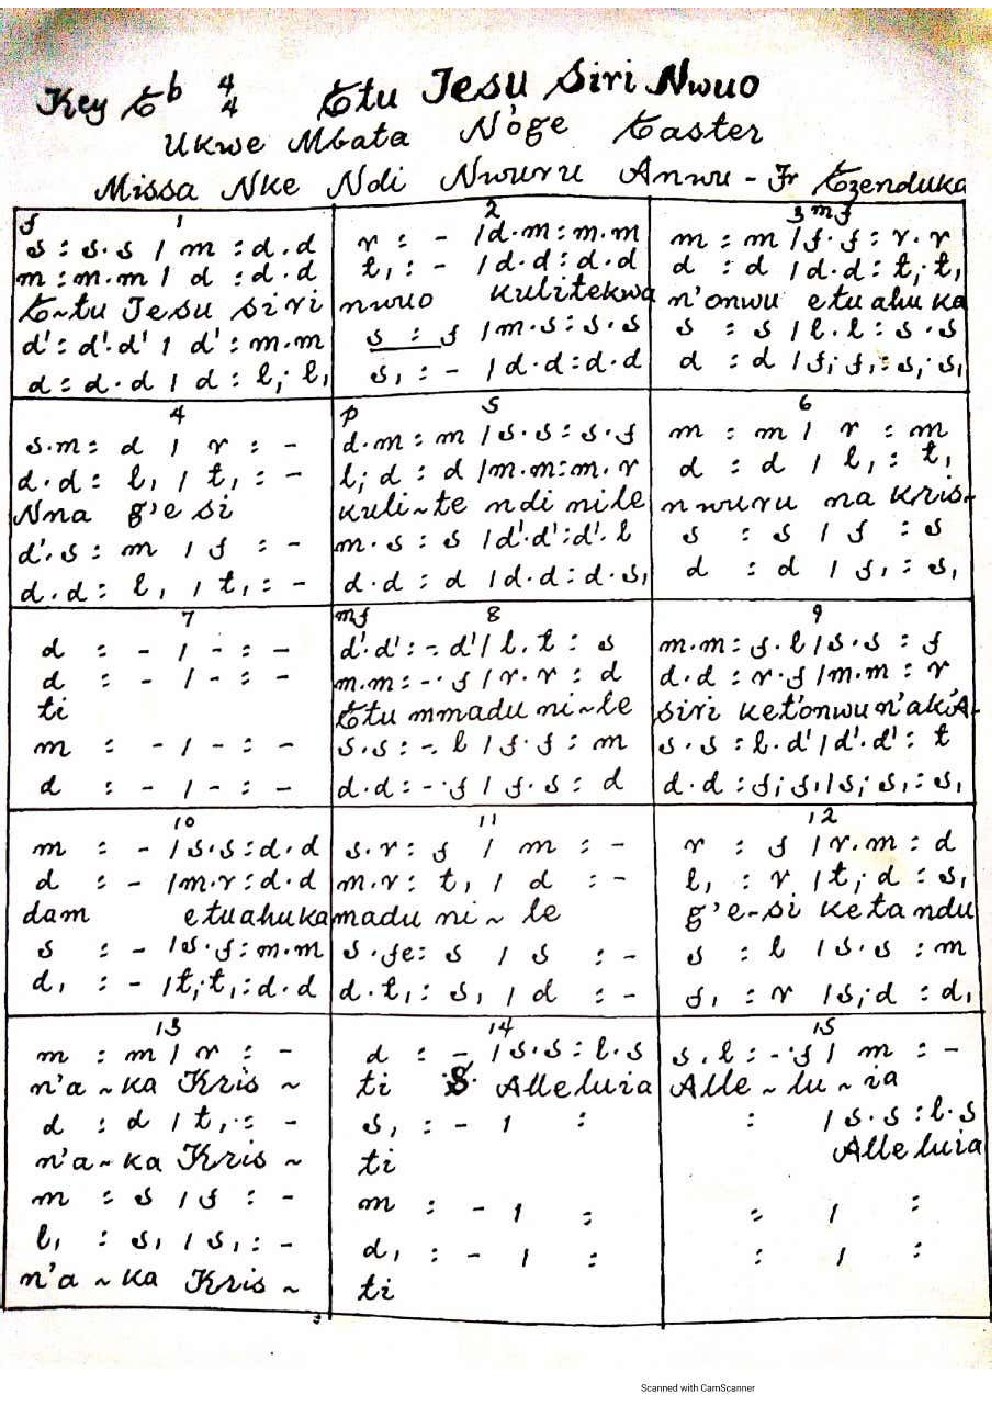 Key Eb 4/4 Etu Jesu Siri Nwuo
Ukwe Mbata N'oge Easter
Missa Nke Ndi Nwuru Anwu - Fr Ezenduka
f 1
s : s.s / m : d.d
m : m.m / d : d.d
E~tu Jesu siri
d' : d'.d' / d' : m.m
d : d.d / d : l,. l,
2
r : - / d.m : m.m
t, : - / d.d : d.d
nwuo kulitekwa
s : f / m.s : s.s
s, : - / d.d : d.d
3 mf
m : m / f.f : r.r
d : d / d.d : t,. t,
n'onwu etu ahu ka
s : s / l.l : s.s
d : d / f,. f, : s,. s,
4
s.m : d / r : -
d.d : l, / t, : -
Nna g'e si
d'.s : m / f : -
d.d : l, / t, : -
p 5
d.m : m / s.s : s.f
l,. d : d / m.m : m.r
kuli~te ndi nile
m.s : s / d'.d' : d'.l
d.d : d / d.d : d.s,
6
m : m / r : m
d : d / l, : t,
nwuru na Kris-
s : s / f : s
d : d / f, : s,
7
d : - / - : -
d : - / - : -
ti
m : - / - : -
d : - / - : -
mf 8
d'.d' : -. d' / l.t : s
m.m : -. f / r.r : d
Etu mmadu ni~le
s.s : -. l / f.f : m
d.d : -. f / f.s : d
9
m.m : f.l / s.s : f
d.d : r.f / m.m : r
siri ket'onwu n'ak'A-
s.s : l.d' / d'.d' : t
d.d : f,. f, / s,. s, : s,
10
m : - / s.s : d.d
d : - / m.r : d.d
dam etu ahu ka
s : - / s.f : m.m
d, : - / t,. t, : d.d
11
s.r : f / m : -
m.r : t, / d : -
madu ni ~ le
s.fe : s / s : -
d.l, : s, / d : -
12
r : f / r.m : d
l, : r / t,. d : s,
g'e-si keta ndu
s : l / s.s : m
f, : r / s,. d : d,
13
m : m / r : -
n'a ~ ka Kris ~
d : d / t, : -
n'a ~ ka Kris ~
m : s / f : -
l, : s, / s, : -
n'a ~ ka Kris ~
14
d : - / s.s : l.s
ti S Alleluia
s, : - / :
ti
m : - / :
d, : - / :
ti
15
s.l : -. f / m : -
Alle ~ lu ~ ia
: / s.s : l.s
Alleluia
: / :
: / :
Scanned with CamScanner